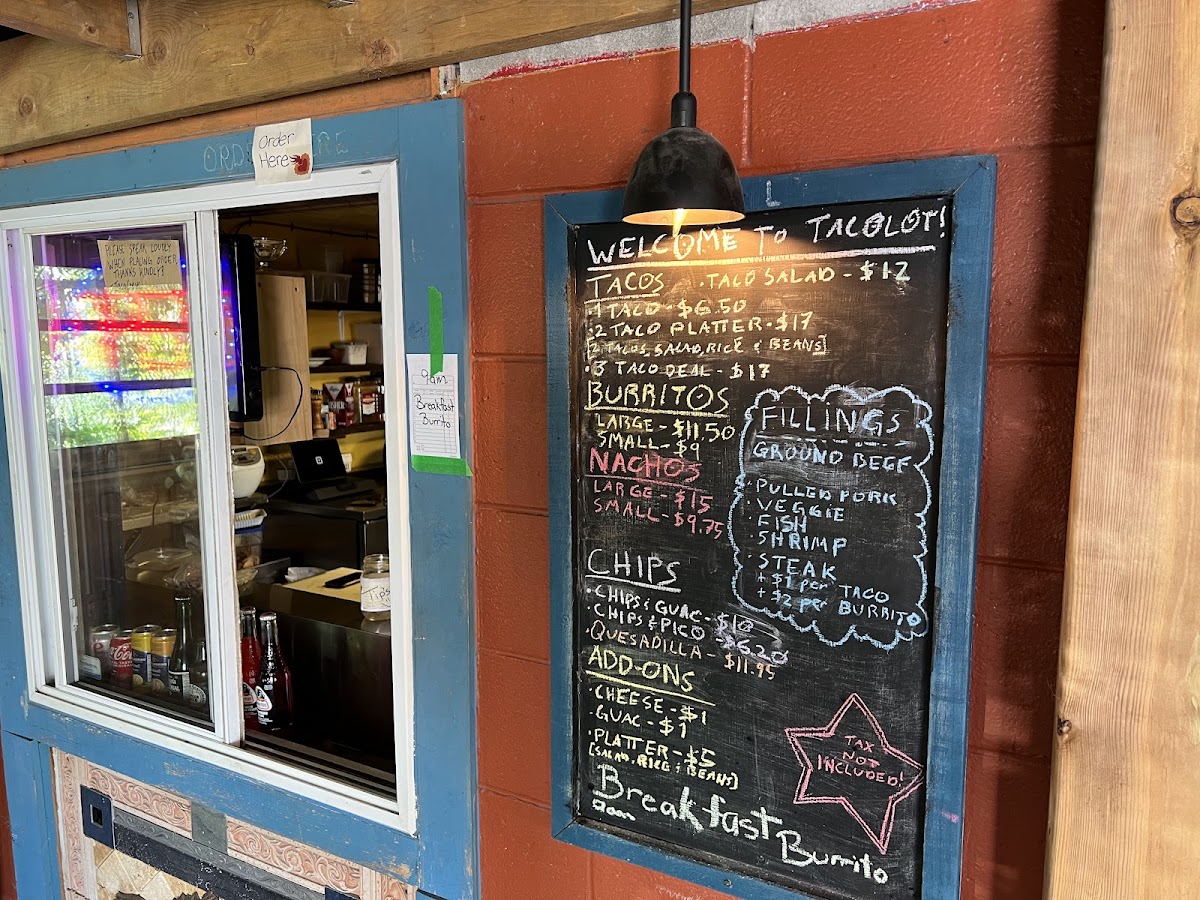 ORDER HERE
Order
Here
PLEASE SPEAK LOUDLY
WHEN PLACING ORDER
THANKS KINDLY!
9am
Breakfast
Burrito
Tips
WELCOME TO TACOLOT!
TACOS · TACO SALAD - $12
· 1 TACO - $6.50
· 2 TACO PLATTER - $17
[2 TACOS, SALAD, RICE & BEANS]
· 3 TACO DEAL - $17
BURRITOS
LARGE - $11.50
SMALL - $9
NACHOS
LARGE - $15
SMALL - $9.75
CHIPS
· CHIPS & GUAC - $10
· CHIPS & PICO - $6.20
· QUESADILLA - $11.95
ADD-ONS
· CHEESE - $1
· GUAC - $1
· PLATTER - $5
[SALAD, RICE & BEANS]
Breakfast
9am
Burrito
FILLINGS
GROUND BEEF
· PULLED PORK
· VEGGIE
· FISH
· SHRIMP
· STEAK
+ $1 per TACO
+ $2 per BURRITO
TAX
NOT
INCLUDED!